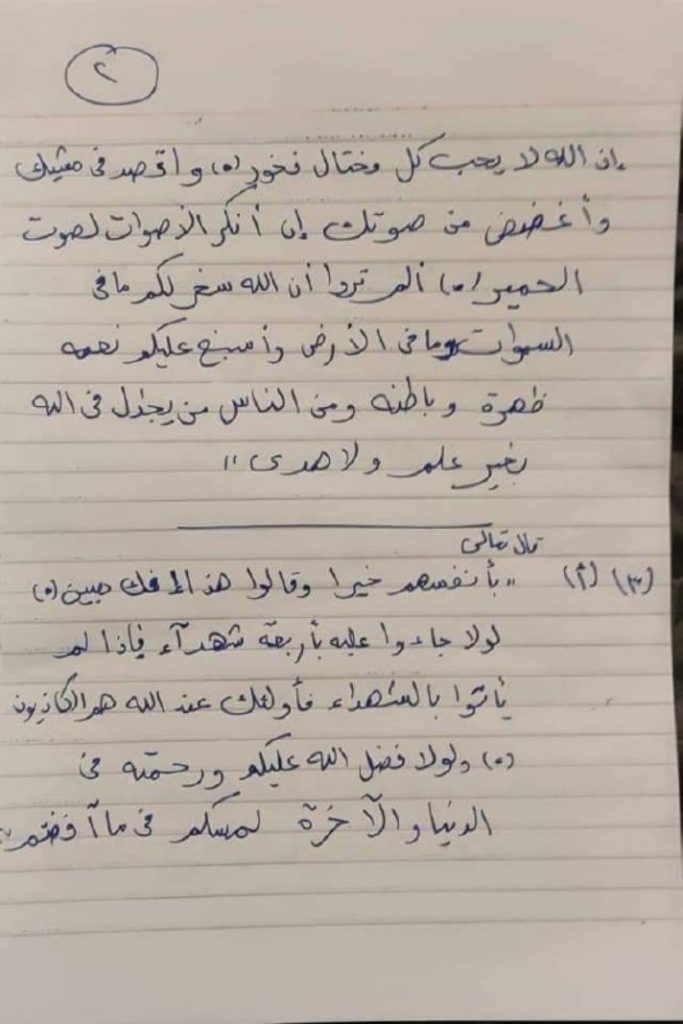 ٢
إن الله لا يحب كل مختال فخور (٥) واقصد فى مشيك
وأغضض من صوتك إن أنكر الأصوات لصوت
الحمير (٥) ألم تروا أن الله سخر لكم ما فى
السموات وما فى الأرض وأسبغ عليكم نعمه
ظهرة وباطنه ومن الناس من يجدل فى الله
بغير علم ولا هدى "
قال تعالى
(٣) (أ) " بأنفسهم خيرا وقالوا هذا إفك مبين (٥)
لولا جاءوا عليه بأربعة شهدآء فإذا لم
يأتوا بالشهداء فأولئك عند الله هم الكاذبون
(٥) ولولا فضل الله عليكم ورحمته فى
الدنيا والآخرة لمسكم فى مآ أفضتم "